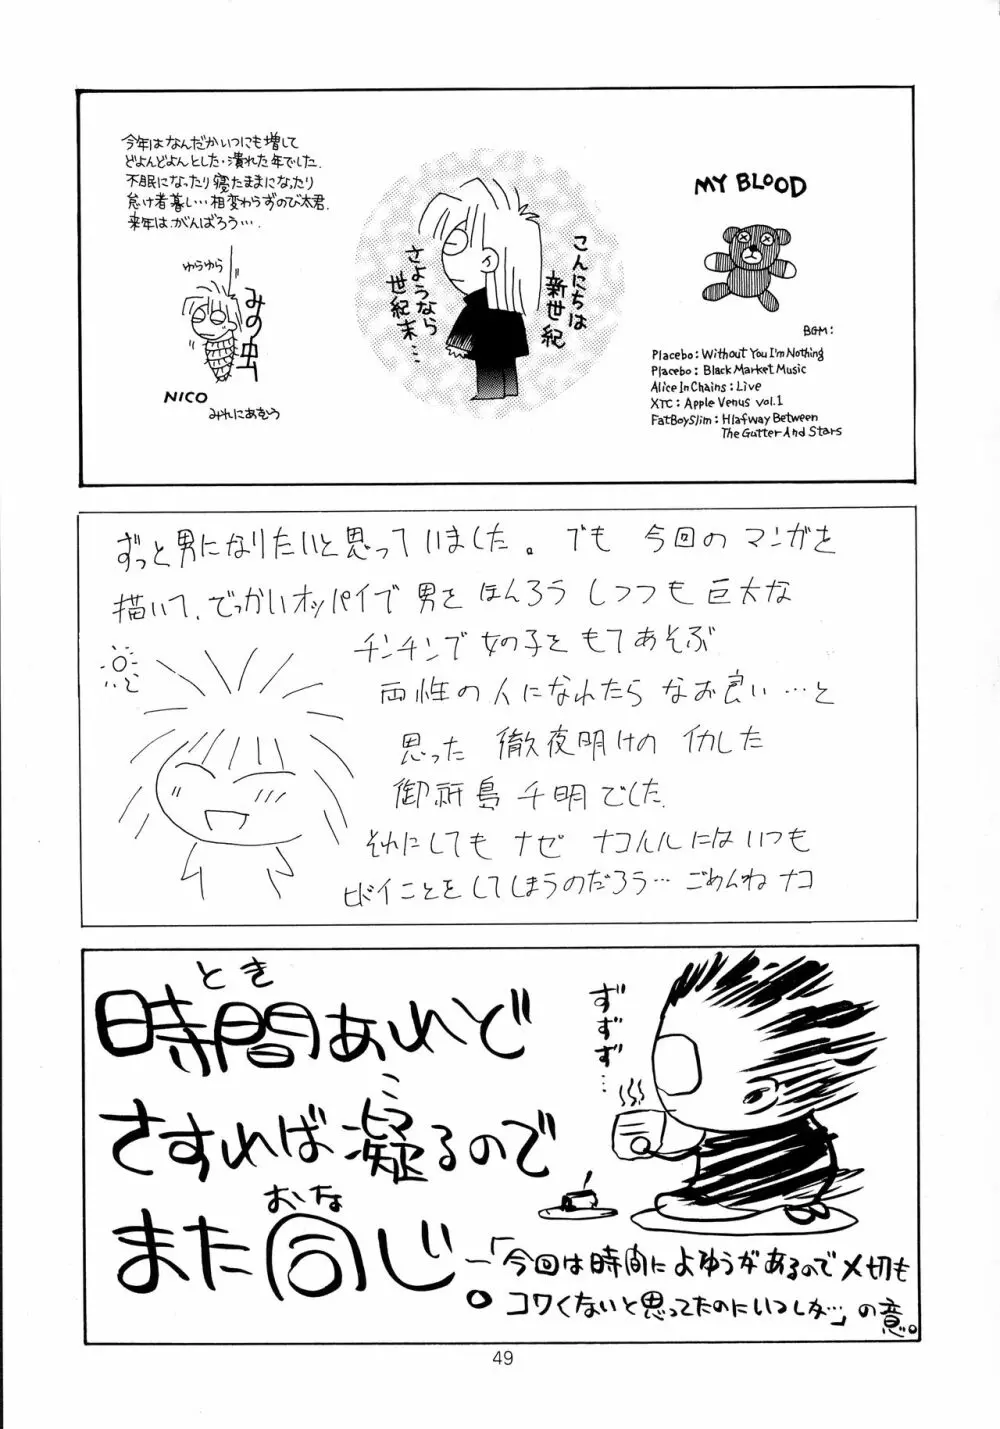 今年はなんだかいつにも増して
どよんどよんとした・潰れた年でした.
不眠になったり寝たままになったり
怠け者暮し…相変わらずのび太君.
来年はがんばろう….
ゆらゆら
みの虫
NICO
みれにあむう
こんにちは
新世紀
さようなら
世紀末…
MY BLOOD
BGM:
Placebo: Without You I'm Nothing
Placebo: Black Market Music
Alice In Chains: Live
XTC: Apple Venus vol.1
FatBoySlim: Hlafway Between
The Gutter And Stars
ずっと男になりたいと思っていました。でも 今回のマンガを
描いて、でっかいオッパイで 男を ほんろう しつつも 巨大な
チンチンで 女の子を もてあそぶ
両性の人になれたら なお良い…と
思った 徹夜明けの イカした
御祈島千明でした.
それにしても ナゼ ナコルルにはいつも
ヒドイことをしてしまうのだろう… ごめんね ナコ
とき
時間あれど
さすれば凝るので
こ
また同じ
おな
。
ずずず…
—「今回は時間によゆうがあるので〆切も
コワくないと思ってたのにいつしか…」の意。
49